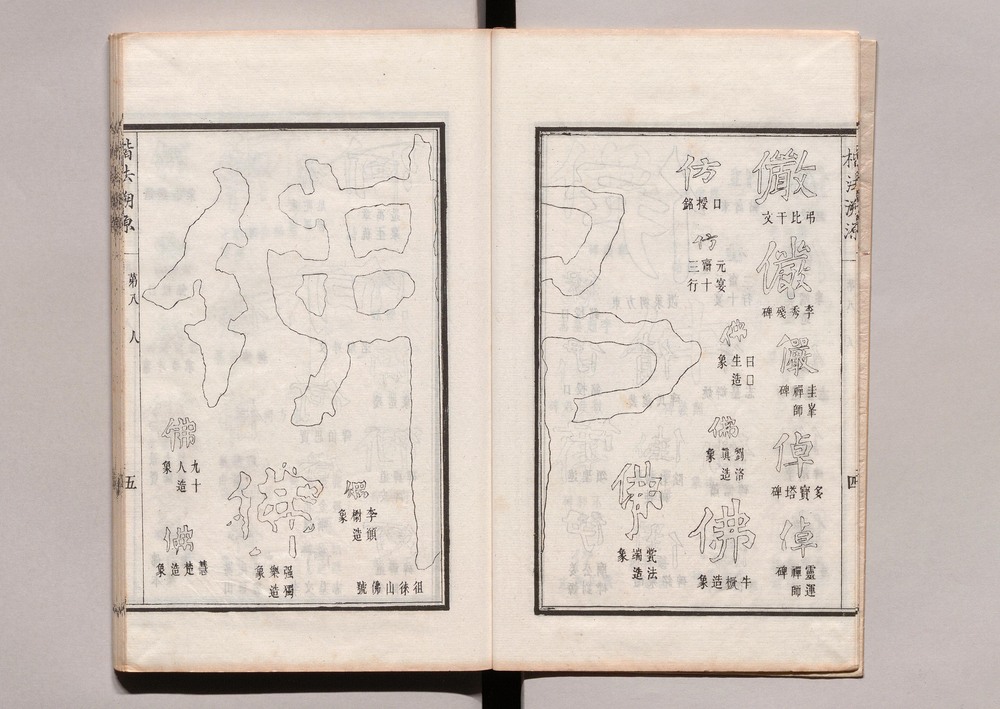 楷法溯源
四
弔比干文
儼
李秀殘碑
儼
圭峯禪師碑
倬
多寶塔碑
倬
靈運禪師碑
仿
口授銘
仿
元宴齋十三行
佛
生造象
佛
劉洛眞造象
佛
牛橛造象
佛
法端造象
佛
徂徠山佛號
佛
李頭造象
佛
强獨樂造象
佛
九十人造象
佛
慧楚造象
楷法溯原
第八
人
五